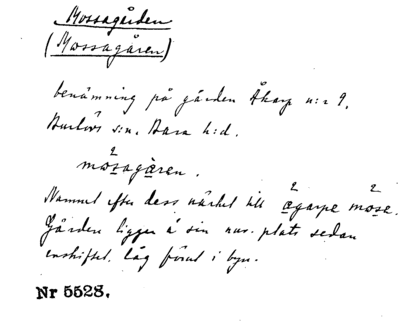 Mossagården
(Mossagåren)
benämning på gården Åkarp n:r 9,
Burlövs s:n, Bara h:d.
mosagären.
Namnet efter dess närhet till agarpe mose.
Gården ligger å sin nuv. plats sedan
enskiftet, låg förut i byn.
Nr 5528.